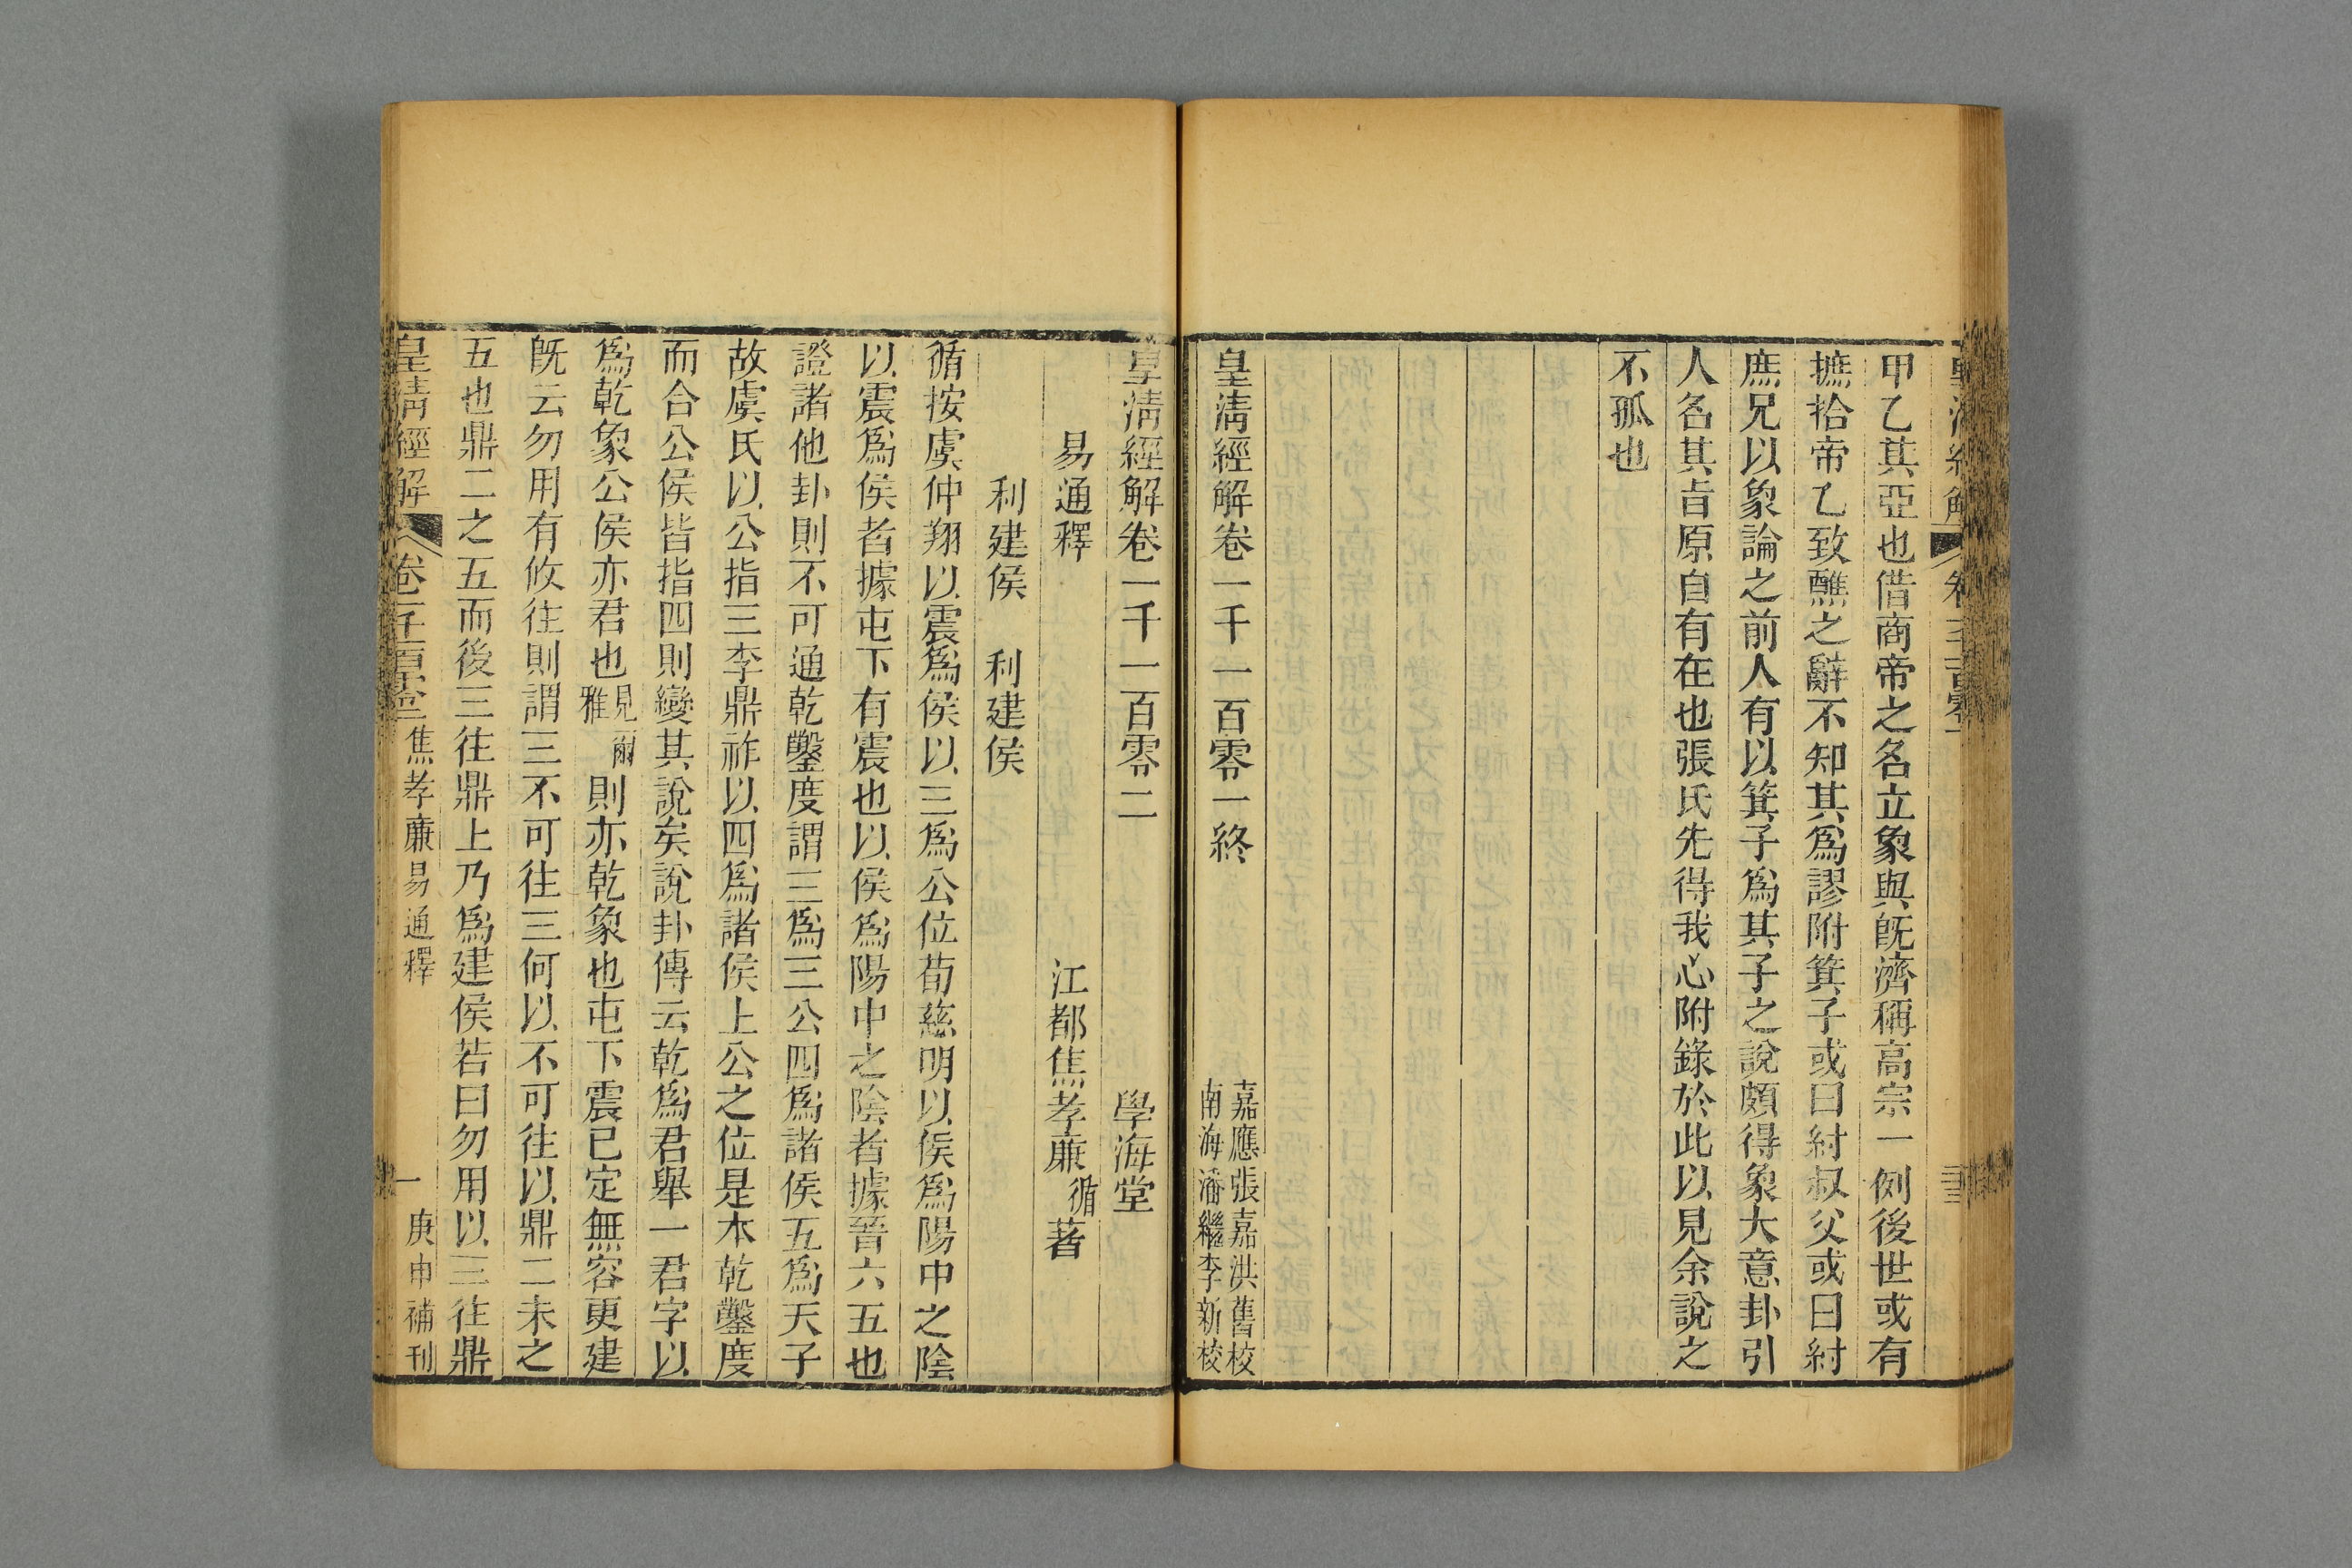 甲乙其亞也借商帝之名立象與旣濟稱高宗一例後世或有
摭拾帝乙致醮之辭不知其爲謬附箕子或曰紂叔父或曰紂
庶兄以象論之前人有以箕子爲其子之說頗得象大意卦引
人名其㫖原自有在也張氏先得我心附錄於此以見余說之
不孤也
皇淸經解卷一千一百零一終
嘉應張嘉洪舊校
南海潘繼李新校
皇淸經解卷一千一百零二
學海堂
易通釋
江都焦孝廉循著
利建侯 利建侯
循按虞仲翔以震爲侯以三爲公位荀慈明以侯爲陽中之陰
以震爲侯者據屯下有震也以侯爲陽中之陰者據晉六五也
證諸他卦則不可通乾鑿度謂三爲三公四爲諸侯五爲天子
故虞氏以公指三李鼎祚以四爲諸侯上公之位是本乾鑿度
而合公侯皆指四則變其說矣說卦傳云乾爲君舉一君字以
爲乾象公侯亦君也見爾雅則亦乾象也屯下震已定無容更建
旣云勿用有攸往則謂三不可往三何以不可往以鼎二未之
五也鼎二之五而後三往鼎上乃爲建侯若曰勿用以三往鼎
皇淸經解 卷 焦孝廉易通釋 一 庚申補刊